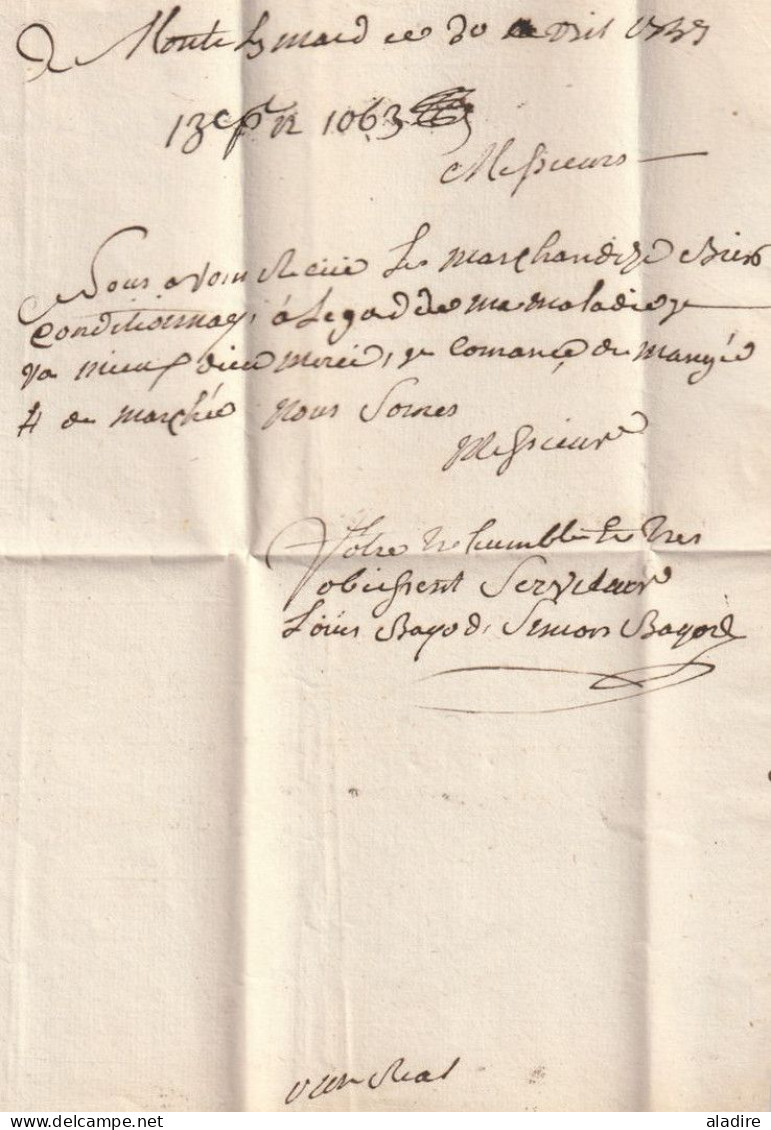 De Montelymard ce 30 avril
13 1063
Messieurs
Nous avons Receu Les marchandize Bien
Conditionnay, a Legard de ma maladie je
va mieux dieu merci, je Comance de mangé
& de marché Nous Somes
Messieurs
Votre tres humble & tres
obeissent Serviteur
Louis Bayod, Simon Bayod
aladire